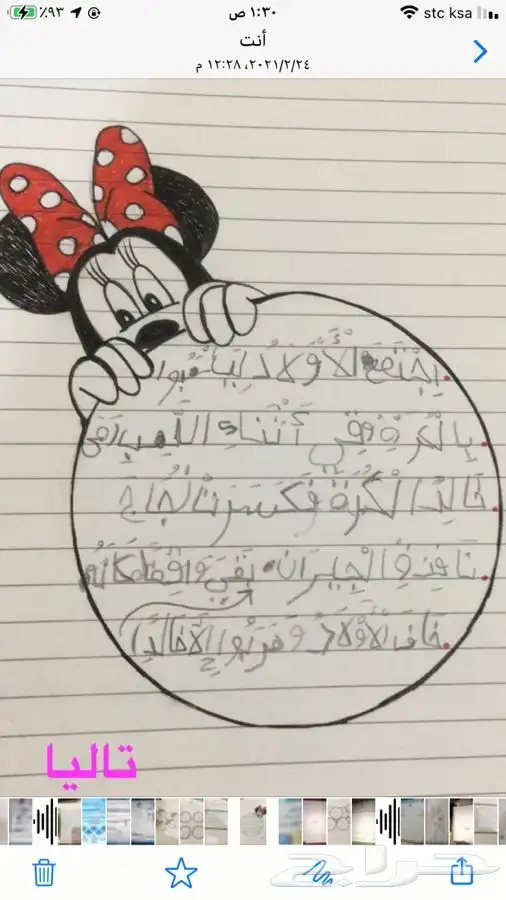 ١:٣٠ ص
stc ksa
٪٩٣
أنت
٢٠٢١/٢/٢٤، ١٢:٢٨ م
اِجْتَمَعَ الْأَوْلَادُ لِيَلْعَبُوا
بِالْكُرَةِ وَفِي أَثْنَاءِ اللَّعِبِ رَمَى
خَالِدٌ الْكُرَةَ فَكَسَرَتْ زُجَاجَ
نَافِذَةِ الْجِيرَانِ. بَقِيَ وَاقِفًا مَكَانَهُ
خَافَ الْأَوْلَادُ وَهَرَبُوا إِلَّا خَالِدًا
تاليا
حراج